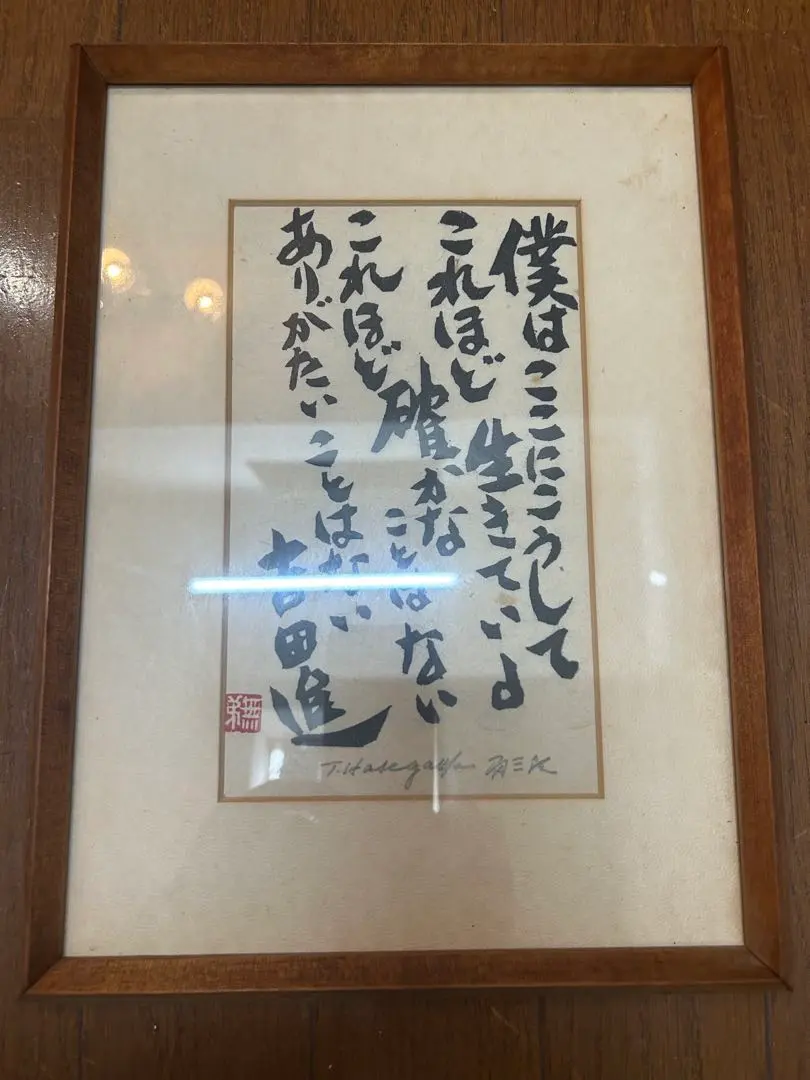 僕はここにこうして
生きている
これほど
確かな
ことはない
これほど
ありがたい
ことはない
吉田進
T. Hasegawa